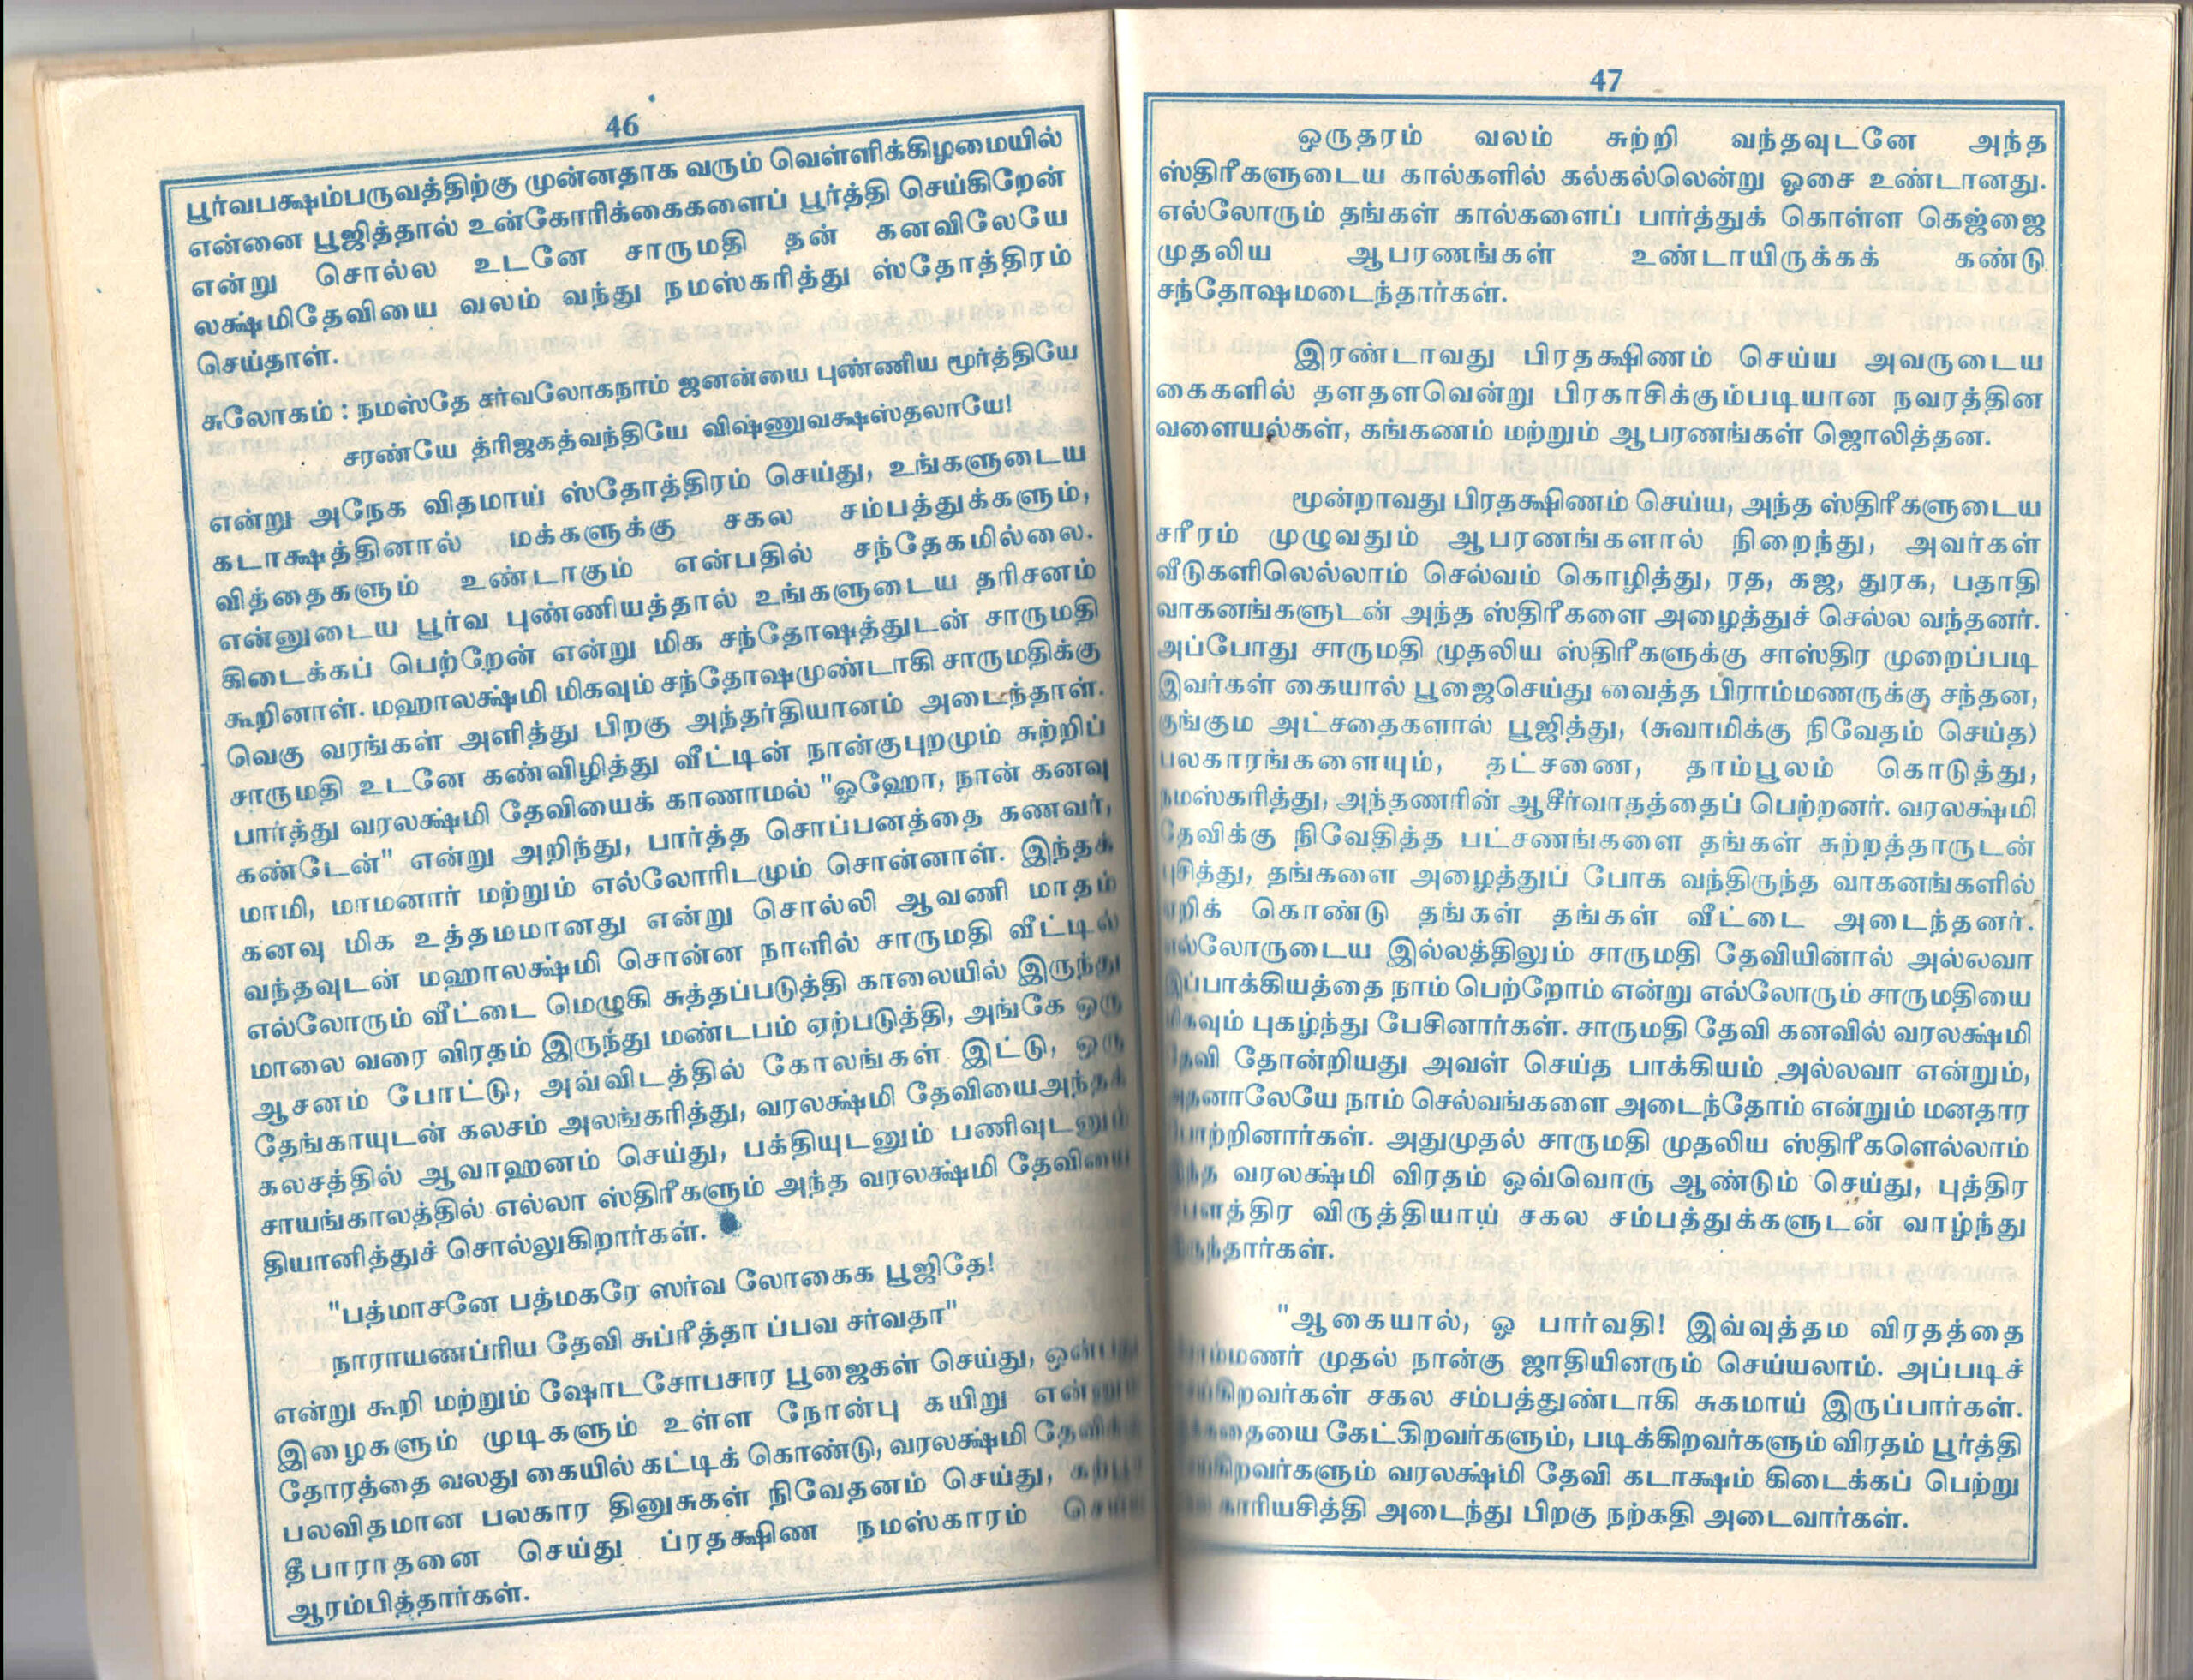 46
பூர்வபக்ஷம்பருவத்திற்கு முன்னதாக வரும் வெள்ளிக்கிழமையில்
என்னை பூஜித்தால் உன்கோரிக்கைகளைப் பூர்த்தி செய்கிறேன்
என்று சொல்ல உடனே சாருமதி தன் கனவிலேயே
லக்ஷ்மிதேவியை வலம் வந்து நமஸ்கரித்து ஸ்தோத்திரம்
செய்தாள்.
சுலோகம் : நமஸ்தே சர்வலோகநாம் ஜனன்யை புண்ணிய மூர்த்தியே
சரண்யே த்ரிஜகத்வந்தியே விஷ்ணுவக்ஷஸ்தலாயே!
என்று அநேக விதமாய் ஸ்தோத்திரம் செய்து, உங்களுடைய
கடாக்ஷத்தினால் மக்களுக்கு சகல சம்பத்துக்களும்,
வித்தைகளும் உண்டாகும் என்பதில் சந்தேகமில்லை.
என்னுடைய பூர்வ புண்ணியத்தால் உங்களுடைய தரிசனம்
கிடைக்கப் பெற்றேன் என்று மிக சந்தோஷத்துடன் சாருமதி
கூறினாள். மஹாலக்ஷ்மி மிகவும் சந்தோஷமுண்டாகி சாருமதிக்கு
வெகு வரங்கள் அளித்து பிறகு அந்தர்தியானம் அடைந்தாள்.
சாருமதி உடனே கண்விழித்து வீட்டின் நான்குபுறமும் சுற்றிப்
பார்த்து வரலக்ஷ்மி தேவியைக் காணாமல் "ஓஹோ, நான் கனவு
கண்டேன்" என்று அறிந்து, பார்த்த சொப்பனத்தை கணவர்,
மாமி, மாமனார் மற்றும் எல்லோரிடமும் சொன்னாள். இந்தக்
கனவு மிக உத்தமமானது என்று சொல்லி ஆவணி மாதம்
வந்தவுடன் மஹாலக்ஷ்மி சொன்ன நாளில் சாருமதி வீட்டில்
எல்லோரும் வீட்டை மெழுகி சுத்தப்படுத்தி காலையில் இருந்து
மாலை வரை விரதம் இருந்து மண்டபம் ஏற்படுத்தி, அங்கே ஒரு
ஆசனம் போட்டு, அவ்விடத்தில் கோலங்கள் இட்டு, ஒரு
தேங்காயுடன் கலசம் அலங்கரித்து, வரலக்ஷ்மி தேவியைஅந்தக்
கலசத்தில் ஆவாஹனம் செய்து, பக்தியுடனும் பணிவுடனும்
சாயங்காலத்தில் எல்லா ஸ்திரீகளும் அந்த வரலக்ஷ்மி தேவியை
தியானித்துச் சொல்லுகிறார்கள்.
"பத்மாசனே பத்மகரே ஸர்வ லோகைக பூஜிதே!
நாராயணப்ரிய தேவி சுப்ரீத்தா ப்பவ சர்வதா"
என்று கூறி மற்றும் ஷோடசோபசார பூஜைகள் செய்து, ஒன்பது
இழைகளும் முடிகளும் உள்ள நோன்பு கயிறு என்னும்
தோரத்தை வலது கையில் கட்டிக் கொண்டு, வரலக்ஷ்மி தேவிக்கு
பலவிதமான பலகார தினுசுகள் நிவேதனம் செய்து, கற்பூர
தீபாராதனை செய்து ப்ரதக்ஷிண நமஸ்காரம் செய்ய
ஆரம்பித்தார்கள்.
47
ஒருதரம் வலம் சுற்றி வந்தவுடனே அந்த
ஸ்திரீகளுடைய கால்களில் கல்கல்லென்று ஓசை உண்டானது.
எல்லோரும் தங்கள் கால்களைப் பார்த்துக் கொள்ள கெஜ்ஜை
முதலிய ஆபரணங்கள் உண்டாயிருக்கக் கண்டு
சந்தோஷமடைந்தார்கள்.
இரண்டாவது பிரதக்ஷிணம் செய்ய அவருடைய
கைகளில் தளதளவென்று பிரகாசிக்கும்படியான நவரத்தின
வளையல்கள், கங்கணம் மற்றும் ஆபரணங்கள் ஜொலித்தன.
மூன்றாவது பிரதக்ஷிணம் செய்ய, அந்த ஸ்திரீகளுடைய
சரீரம் முழுவதும் ஆபரணங்களால் நிறைந்து, அவர்கள்
வீடுகளிலெல்லாம் செல்வம் கொழித்து, ரத, கஜ, துரக, பதாதி
வாகனங்களுடன் அந்த ஸ்திரீகளை அழைத்துச் செல்ல வந்தனர்.
அப்போது சாருமதி முதலிய ஸ்திரீகளுக்கு சாஸ்திர முறைப்படி
இவர்கள் கையால் பூஜைசெய்து வைத்த பிராம்மணருக்கு சந்தன,
குங்கும அட்சதைகளால் பூஜித்து, (சுவாமிக்கு நிவேதம் செய்த)
பலகாரங்களையும், தட்சணை, தாம்பூலம் கொடுத்து,
நமஸ்கரித்து, அந்தணரின் ஆசீர்வாதத்தைப் பெற்றனர். வரலக்ஷ்மி
தேவிக்கு நிவேதித்த பட்சணங்களை தங்கள் சுற்றத்தாருடன்
புசித்து, தங்களை அழைத்துப் போக வந்திருந்த வாகனங்களில்
ஏறிக் கொண்டு தங்கள் தங்கள் வீட்டை அடைந்தனர்.
எல்லோருடைய இல்லத்திலும் சாருமதி தேவியினால் அல்லவா
இப்பாக்கியத்தை நாம் பெற்றோம் என்று எல்லோரும் சாருமதியை
மிகவும் புகழ்ந்து பேசினார்கள். சாருமதி தேவி கனவில் வரலக்ஷ்மி
தேவி தோன்றியது அவள் செய்த பாக்கியம் அல்லவா என்றும்,
அதனாலேயே நாம் செல்வங்களை அடைந்தோம் என்றும் மனதார
போற்றினார்கள். அதுமுதல் சாருமதி முதலிய ஸ்திரீகளெல்லாம்
இந்த வரலக்ஷ்மி விரதம் ஒவ்வொரு ஆண்டும் செய்து, புத்திர
பௌத்திர விருத்தியாய் சகல சம்பத்துக்களுடன் வாழ்ந்து
இருந்தார்கள்.
"ஆகையால், ஓ பார்வதி! இவ்வுத்தம விரதத்தை
முதல் நான்கு ஜாதியினரும் செய்யலாம். அப்படிச்
சகல சம்பத்துண்டாகி சுகமாய் இருப்பார்கள்.
கேட்கிறவர்களும், படிக்கிறவர்களும் விரதம் பூர்த்தி
வரலக்ஷ்மி தேவி கடாக்ஷம் கிடைக்கப் பெற்று
காரியசித்தி அடைந்து பிறகு நற்கதி அடைவார்கள்.